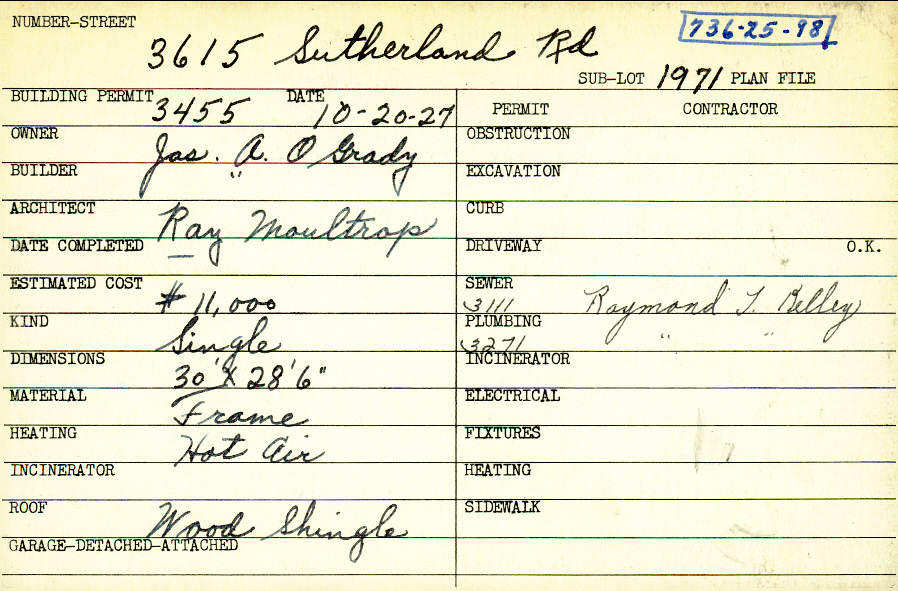 NUMBER-STREET
3615 Sutherland Rd
736-25-98
SUB-LOT 1971 PLAN FILE
BUILDING PERMIT 3455 DATE 10-20-27
PERMIT CONTRACTOR
OWNER Jas. A. O Grady
OBSTRUCTION
BUILDER "
EXCAVATION
ARCHITECT Ray Moultrop
CURB
DATE COMPLETED —
DRIVEWAY O.K.
ESTIMATED COST # 11,000
SEWER 3111 Raymond T. Belley
KIND Single
PLUMBING 3271 " "
DIMENSIONS 30' X 28'6"
INCINERATOR
MATERIAL Frame
ELECTRICAL
HEATING Hot Air
FIXTURES
INCINERATOR
HEATING
ROOF Wood Shingle
SIDEWALK
GARAGE-DETACHED-ATTACHED